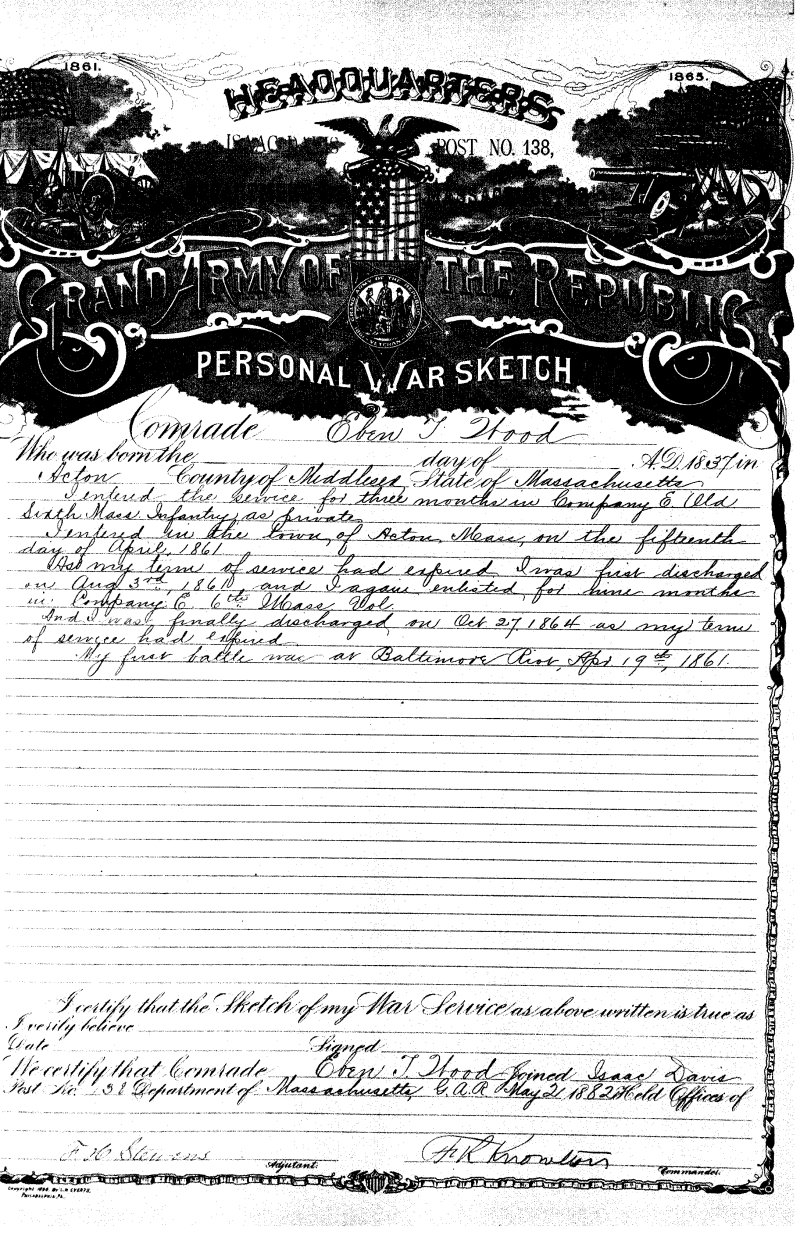 1861.
1865.
HEADQUARTERS
ISAAC DAVIS POST NO. 138,
GRAND ARMY OF THE REPUBLIC
PERSONAL WAR SKETCH
Comrade Eben T Wood
Who was born the day of A.D. 1837 in
Acton County of Middlesex State of Massachusetts
I entered the service for three months in Company E. Old
Sixth Mass Infantry, as private.
I entered in the town of Acton, Mass, on the fifteenth
day of April, 1861
As my term of service had expired I was first discharged
on Aug 3rd, 1861 and I again enlisted for nine months
in Company E 6th Mass Vol.
And I was finally discharged on Oct 27, 1864 as my term
of service had expired
My first battle was at Baltimore Riot, Apr 19th, 1861.
I certify that the Sketch of my War Service as above written is true as
I verily believe
Date Signed
We certify that Comrade Eben T Wood Joined Isaac Davis
Post No. 138 Department of Massachusetts G.A.R. May 2, 1882 Held Offices of
F H Stevens
Adjutant.
F R Knowlton
Commander.
Copyright 1890. By L.H. EVERTS,
PHILADELPHIA, PA.